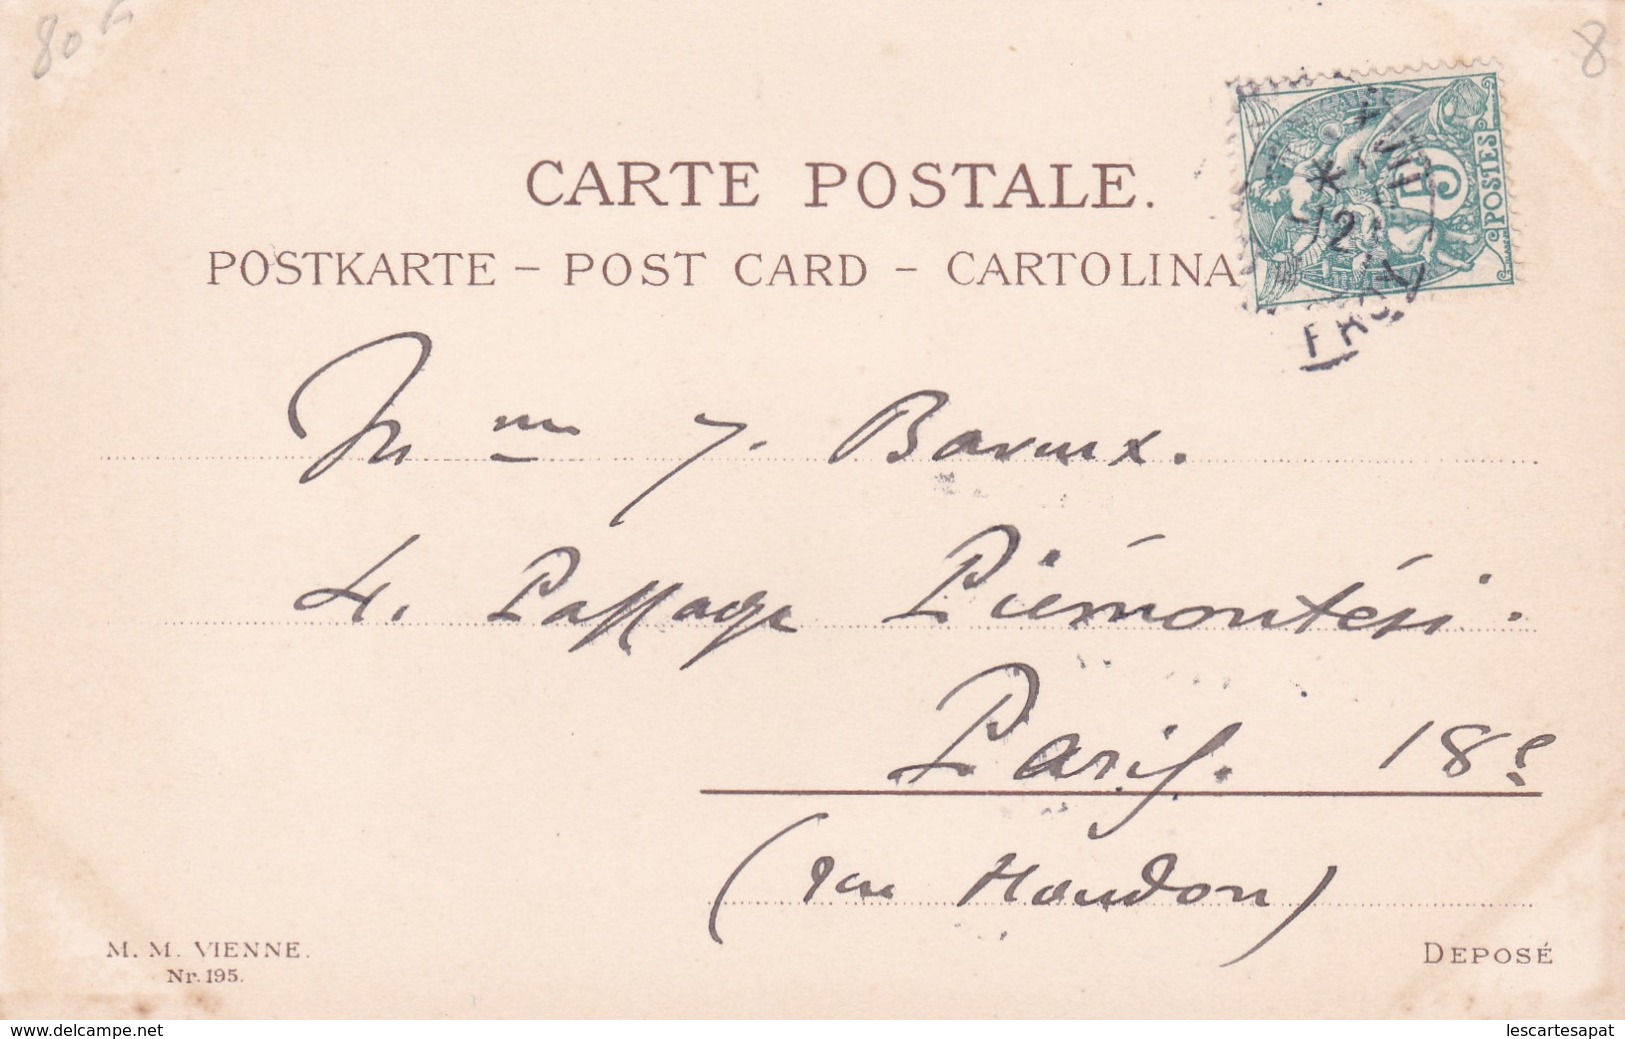 80 F
8
CARTE POSTALE.
POSTKARTE – POST CARD – CARTOLINA
5
POSTES
12
Mme J.
4. Passage Piémontési.
Paris. 18e
(rue Houdon)
M. M. VIENNE.
Nr. 195.
DEPOSÉ
www.delcampe.net
lescartesapat